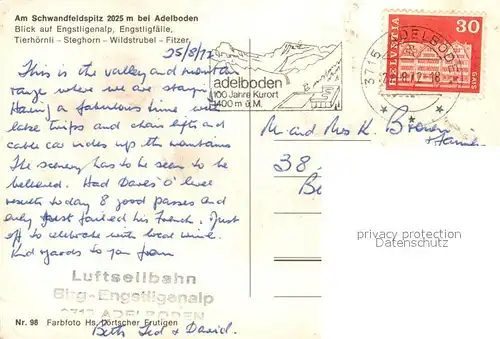 Am Schwandfeldspitz 2025 m bei Adelboden
Blick auf Engstligenalp, Engstligfälle,
Tierhörnli – Steghorn – Wildstrubel – Fitzer,
25/8/72
This is the valley and mountain
range where we are staying
Having a fabulous time with
lake trips and chair lifts and
cable car rides up the mountains
The scenery has to be seen to be
believed. Had Daves 'O' level
results today 8 good passes and
only just failed his French. Just
off to celebrate with local wine.
Kind regards to you from
Beth Ted & David.
Luftseilbahn
Birg-Engstligenalp
3715 ADELBODEN
Nr. 98 Farbfoto Hs. Dörtscher Frutigen
adelboden
100 Jahre Kurort
1400 m ü. M.
3715 ADELBODEN
HELVETIA
30
Mr and Mrs K. Brown
38
privacy protection
Datenschutz